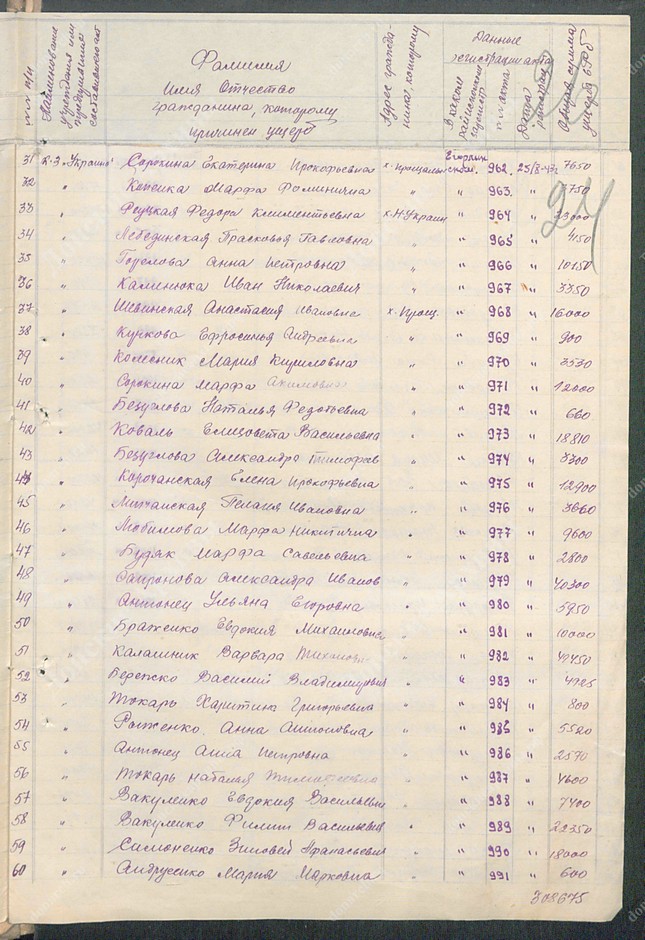 №№ п/п Наименование учреждения или предприятия составившего акт Фамилия Имя Отчество гражданина, которому причинен ущерб Адрес гражданина, которому Данные регистрации акта В каком районном № акта Дата Общая сумма ущерба руб
31 к-з "Украина" Сорокина Екатерина Прокофьевна х. Прощальн 962. 25/8-43г 7650
32 " Копейка Марфа Фоминична " " 963. " 750
33 " Федора Климентьевна х. Н-Украин " 964 " 33000
34 " Лебединская Прасковья Павловна " " 965 " 450
35 " Горелова Анна Петровна " " 966 " 10150
36 " Калинюка Иван Николаевич " " 967 " 3350
37 " Шевинская Анастасия Ивановна х. Прощ. " 968 " 16000
38 " Куркова Ефросинья Андреевна " " 969 " 900
39 " Колесник Мария Кириловна " " 970 " 3530
40 " Сорокина Марфа Акимовна " " 971 " 12000
41 " Безуглова Наталья Федотьевна " " 972 " 660
42 " Коваль Елизовета Васильевна " " 973 " 18810
43 " Безуглова Александра Тимофеев " " 974 " 3300
44 " Корочанская Елена Прокофьевна " " 975 " 12900
45 " Пелагия Ивановна " " 976 " 3660
46 " Любимова Марфа Никитична " " 977 " 9600
47 " Будяк Марфа Савельевна " " 978 " 2800
48 " Сапронова Александра Иванов " " 979 " 40300
49 " Антонец Ульяна Егоровна " " 980 " 5950
50 " Браженко Евдокия Михайловна " " 981 " 10000
51 " Калашник Варвара Тихоновн " " 982 " 49450
52 " Василий Владимирович " " 983 " 4925
53 " Токарь Харитина Григорьевна " " 984 " 800
54 " Рыженко Анна Антоновна " " 985 " 5520
55 " Антонец Анна Петровна " " 986 " 2570
56 " Токарь Наталья Тимофеевна " " 987 " 4600
57 " Вакуленко Евдокия Васильевн " " 988 " 7400
58 " Вакуленко Филипп Васильевич " " 989 " 22350
59 " Симоненко Зиновей Афанасьевич " " 990 " 18000
60 " Андрусенко Мария Марковна " " 991 " 600
308675